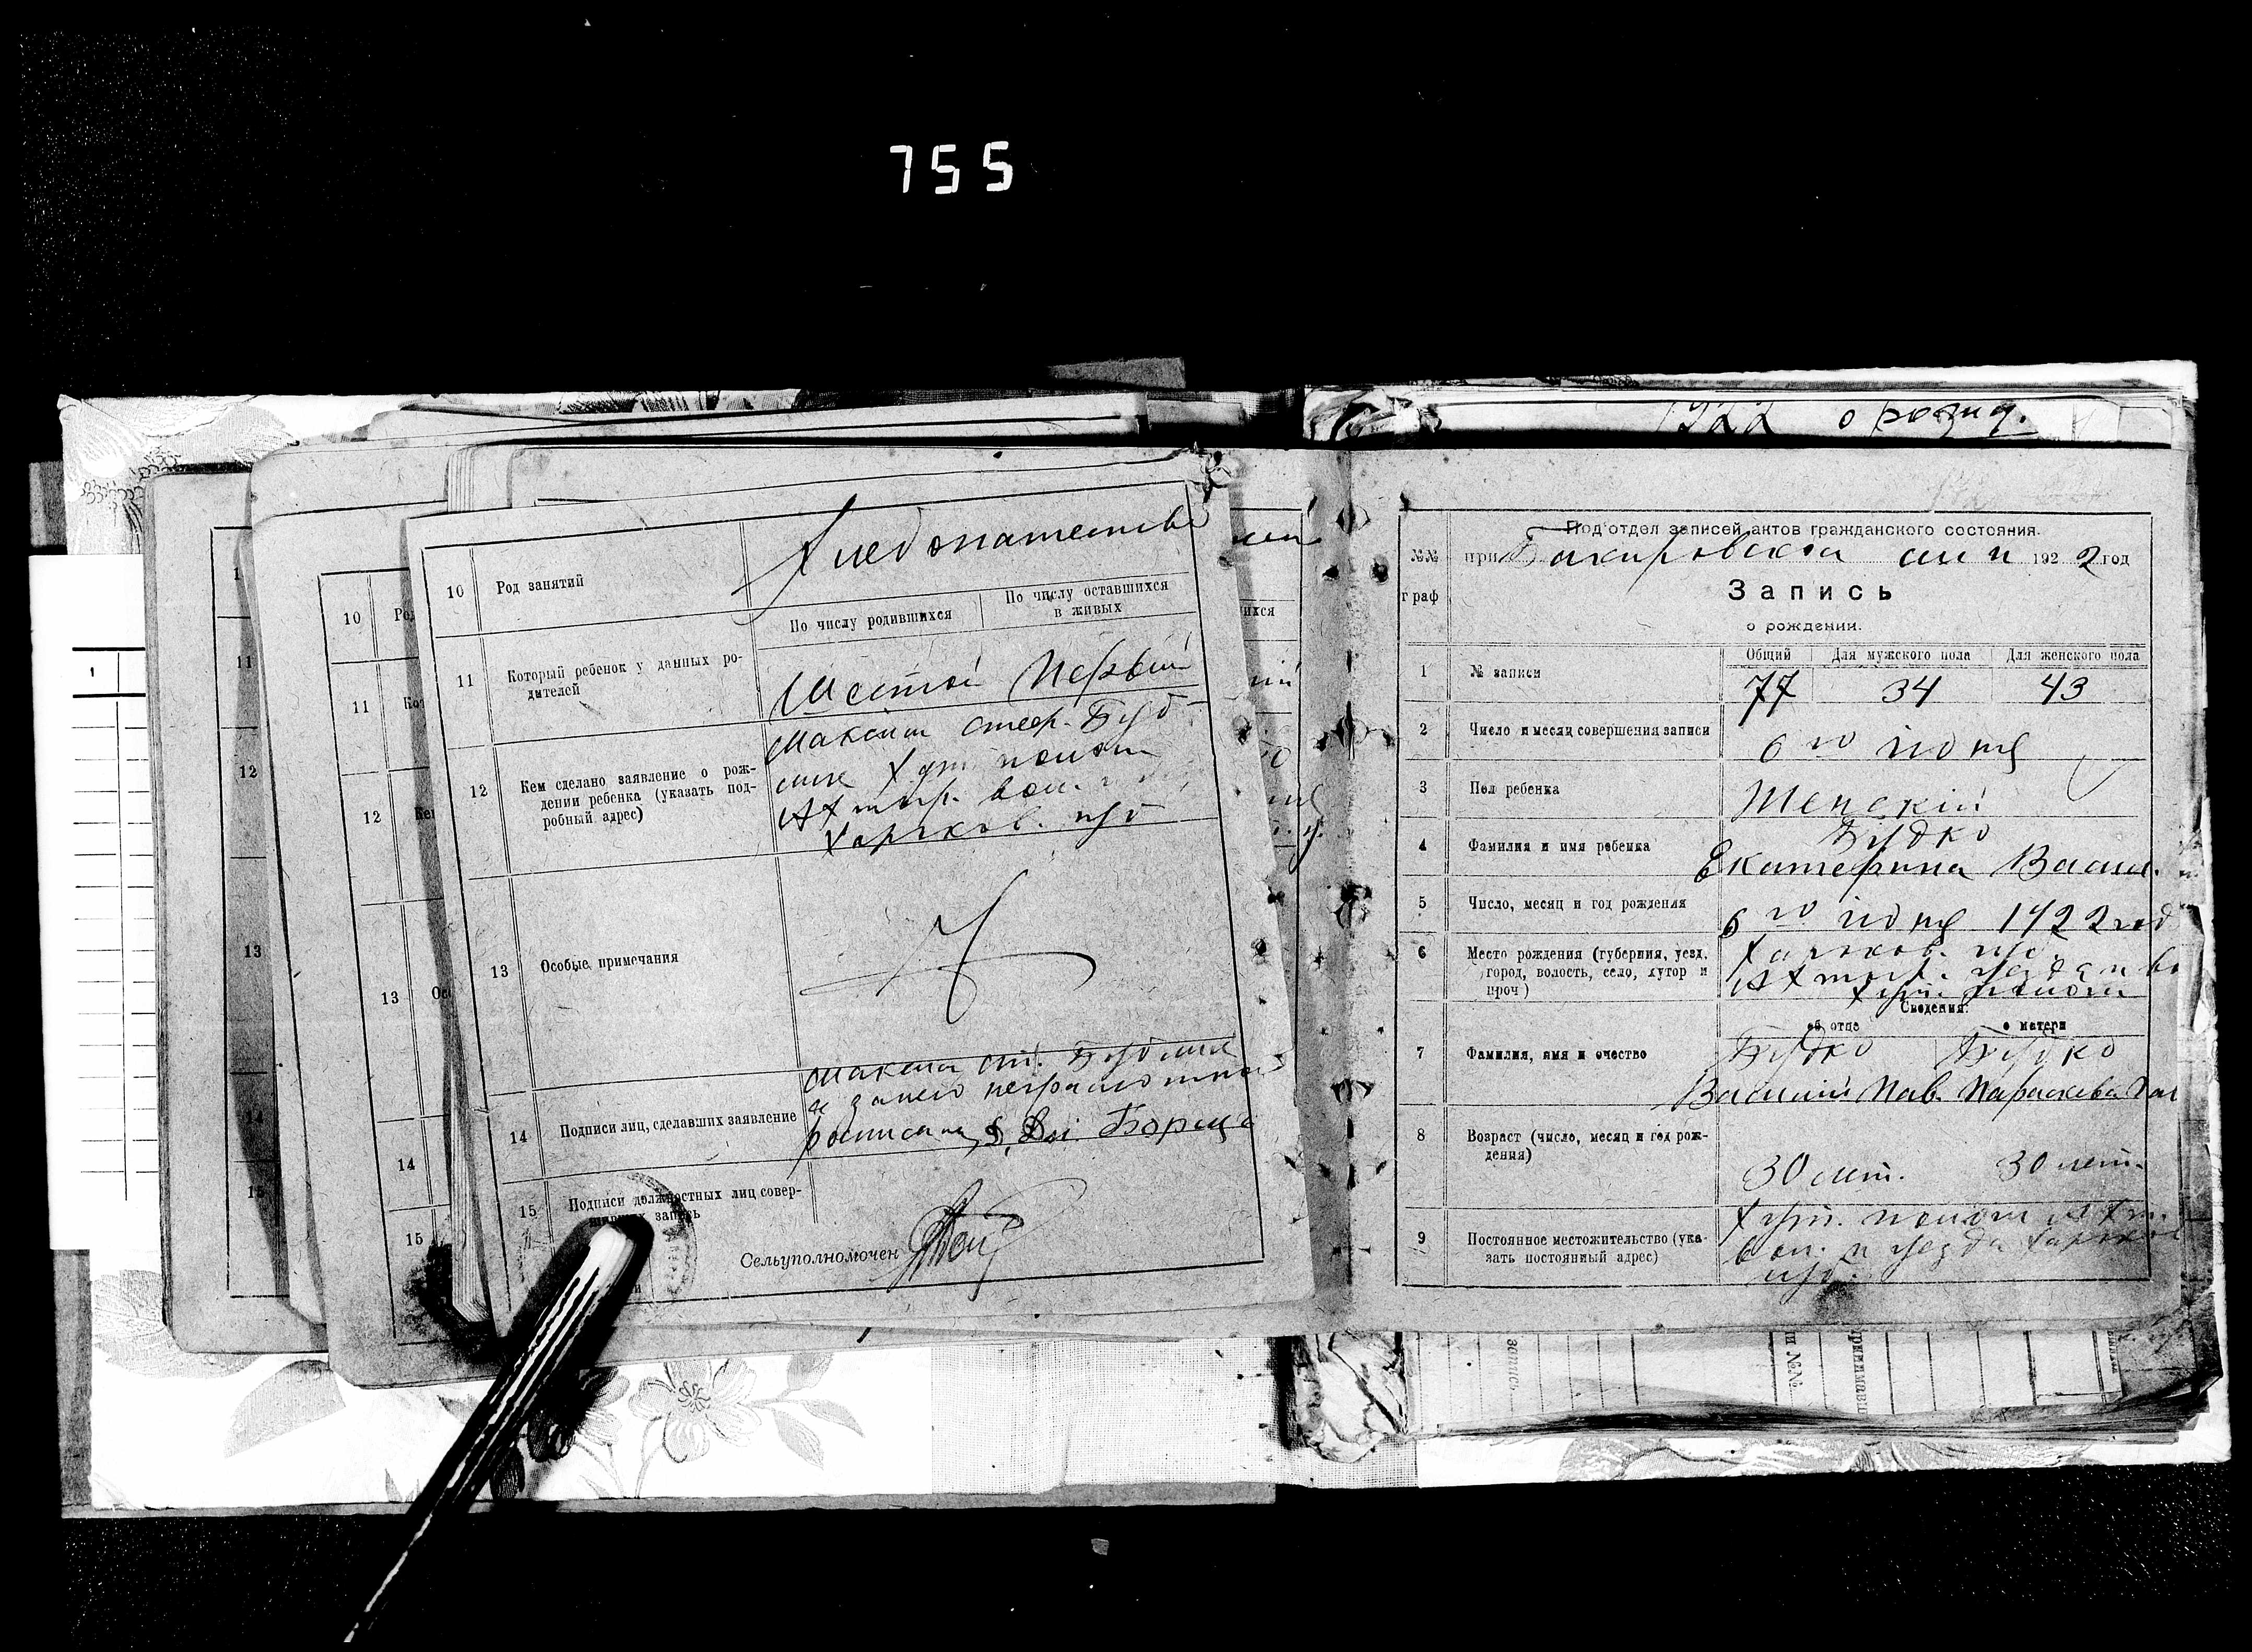 755
1922 о рожд.
10 Род занятий Хлебопашество
По числу родившихся По числу оставшихся в живых
11 Который ребенок у данных ро-
дителей
Шестой Первый
12 Кем сделано заявление о рож-
дении ребенка (указать под-
робный адрес)
Максим Стеф.
Хут.
Ахтыр. вол.
Харьков. губ
13 Особые примечания
14 Подписи лиц, сделавших заявление
Максим Ст.
а за него неграмотного
росписался Борща
15 Подписи должностных лиц совер-
запись
Сельуполномочен
10
11
12
13
14
15
10
11
12
13
14
15
1
Под'отдел записей актов гражданского состояния.
№№ граф
при Бакировской 1922 год
Запись
о рождении.
1 № записи
Общий Для мужского пола Для женского пола
77 34 43
2 Число и месяц совершения записи
6 го июня
3 Пол ребенка Женский
4 Фамилия и имя ребенка
Будко
Екатерина Васил.
5 Число, месяц и год рождения
6 го июня 1922 год
6 Место рождения (губерния, уезд,
город, волость, село, хутор и
проч)
Харьков. губ.
Ахтыр. уезда и во
Хут.
Сведения:
об отце о матери
7 Фамилия, имя и очество
Будко Будко
Василий Пав. Параскева
8 Возраст (число, месяц и год рож-
дения)
30 лет. 30 лет.
9 Постоянное местожительство (ука-
зать постоянный адрес)
Хут. Ахт.
вол. и уезда Харьков
губ.